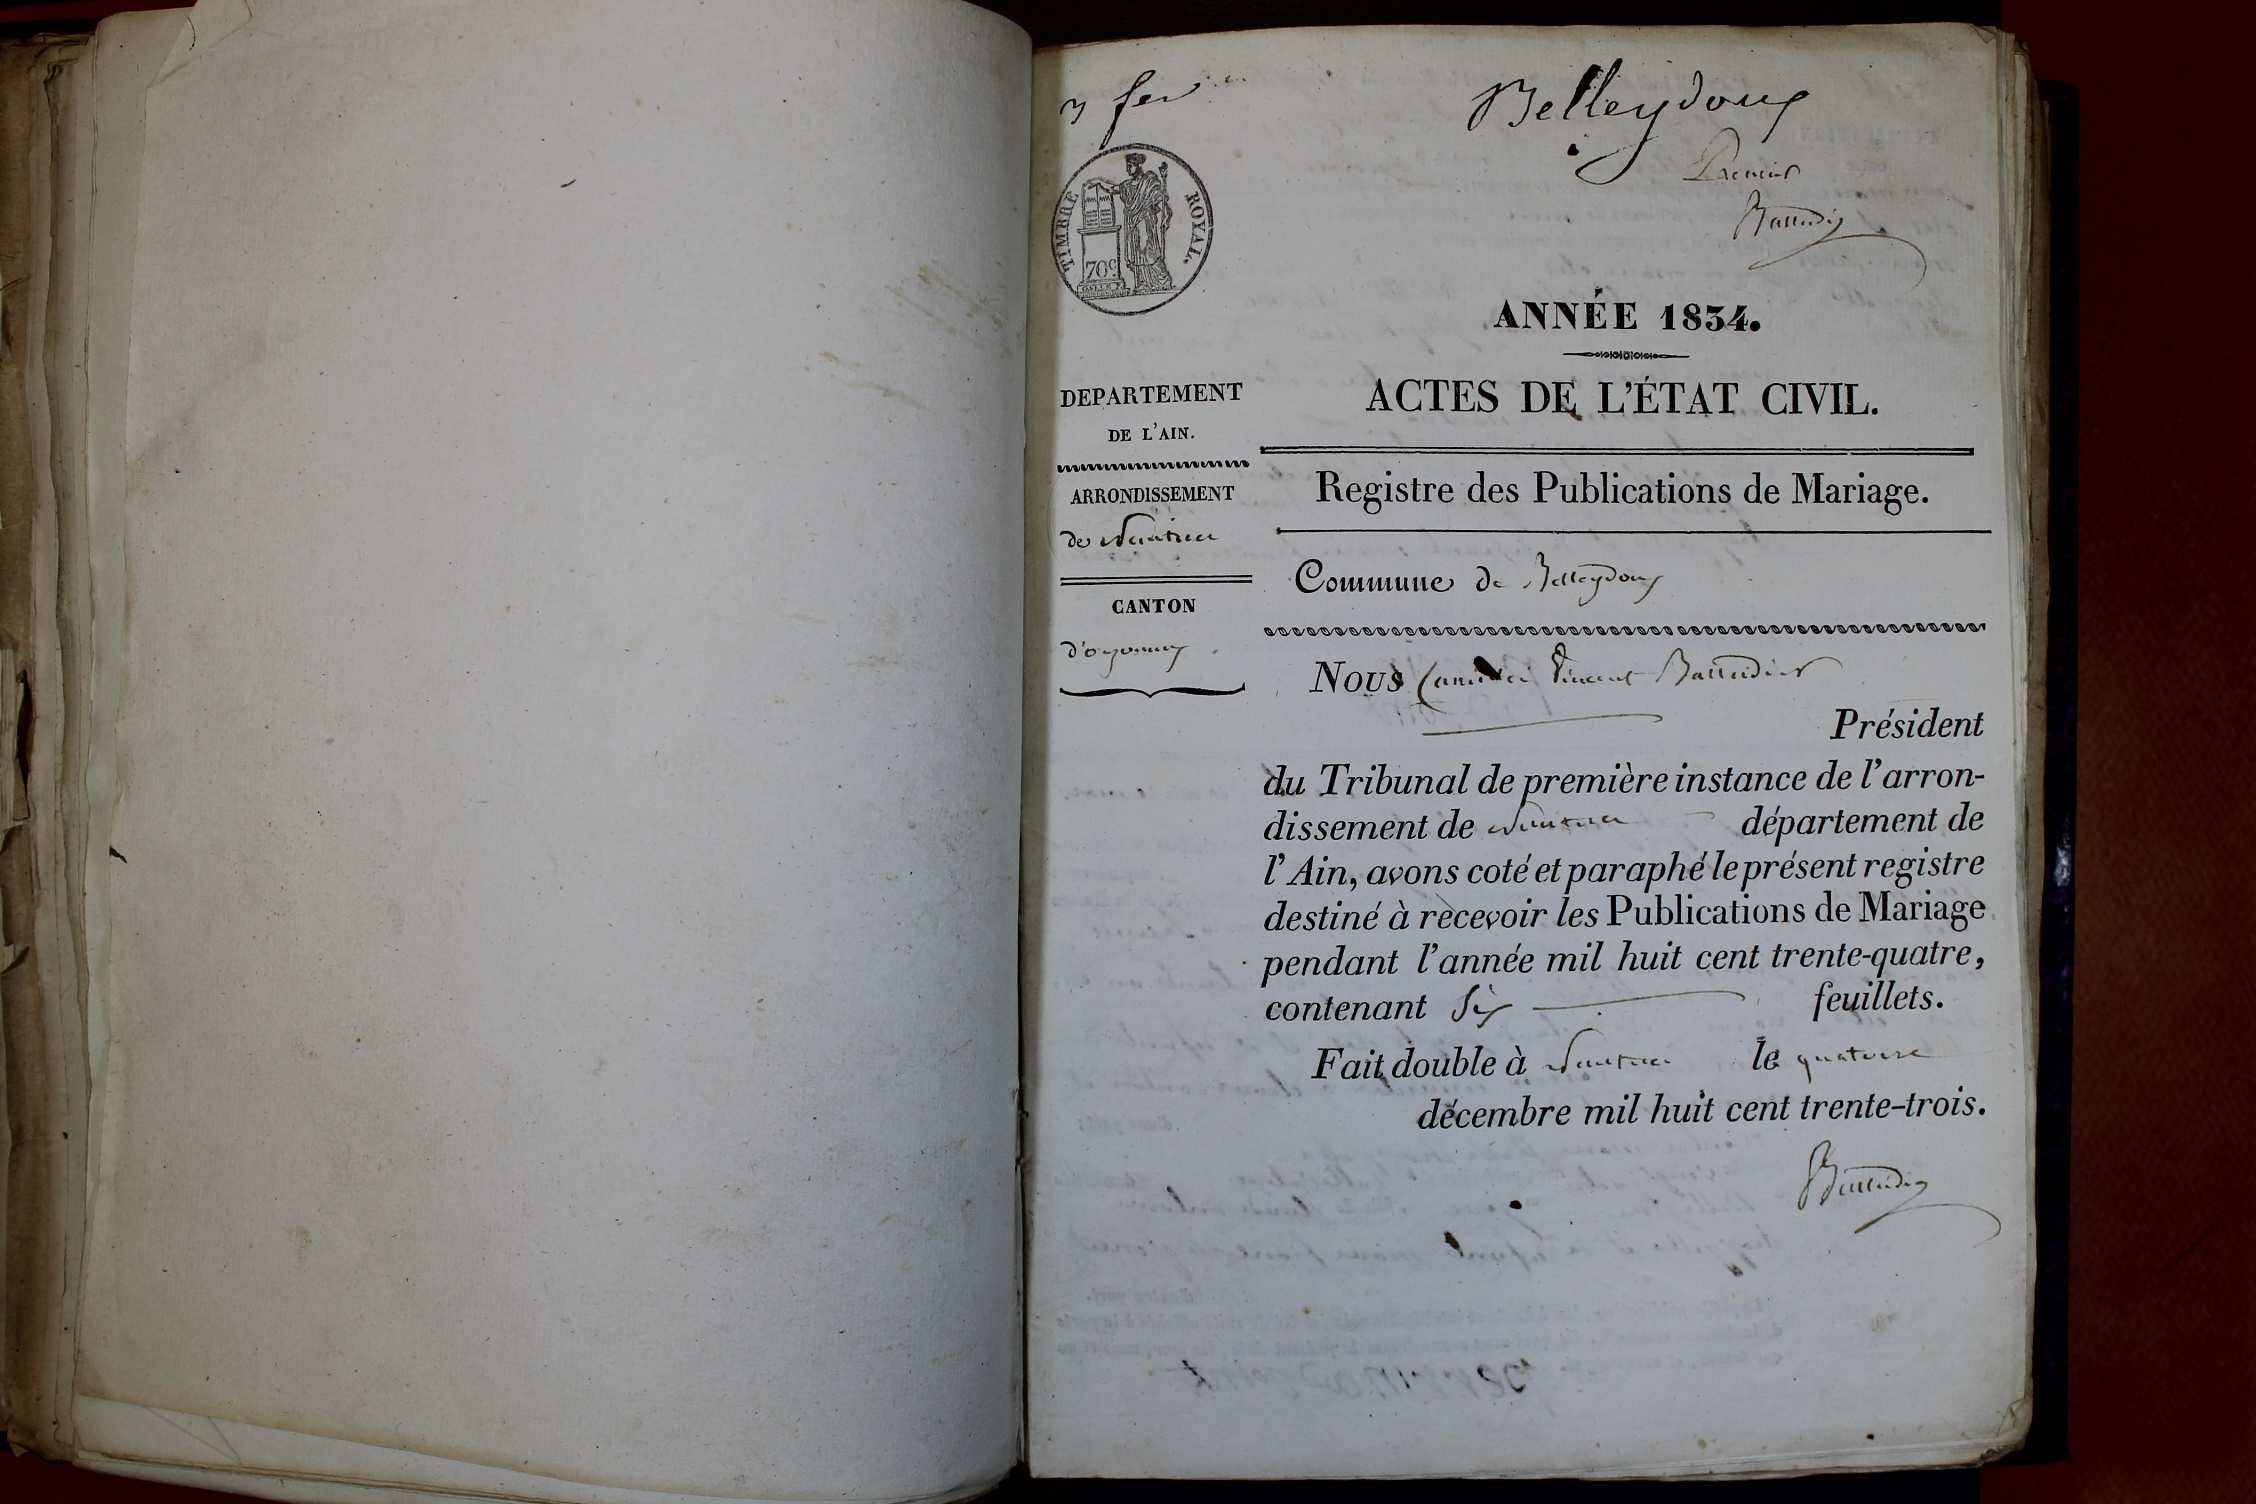 3 fev
Belleydoux
Premier
TIMBRE ROYAL.
70 c
ANNÉE 1834.
ACTES DE L'ÉTAT CIVIL.
DEPARTEMENT
DE L'AIN.
ARRONDISSEMENT
de Nantua
CANTON
d'oyonnax
Registre des Publications de Mariage.
Commune de Belleydoux
Nous Vincent
Président
du Tribunal de première instance de l'arron-
dissement de Nantua département de
l'Ain, avons coté et paraphé le présent registre
destiné à recevoir les Publications de Mariage
pendant l'année mil huit cent trente-quatre,
contenant Six feuillets.
Fait double à Nantua le quatorze
décembre mil huit cent trente-trois.